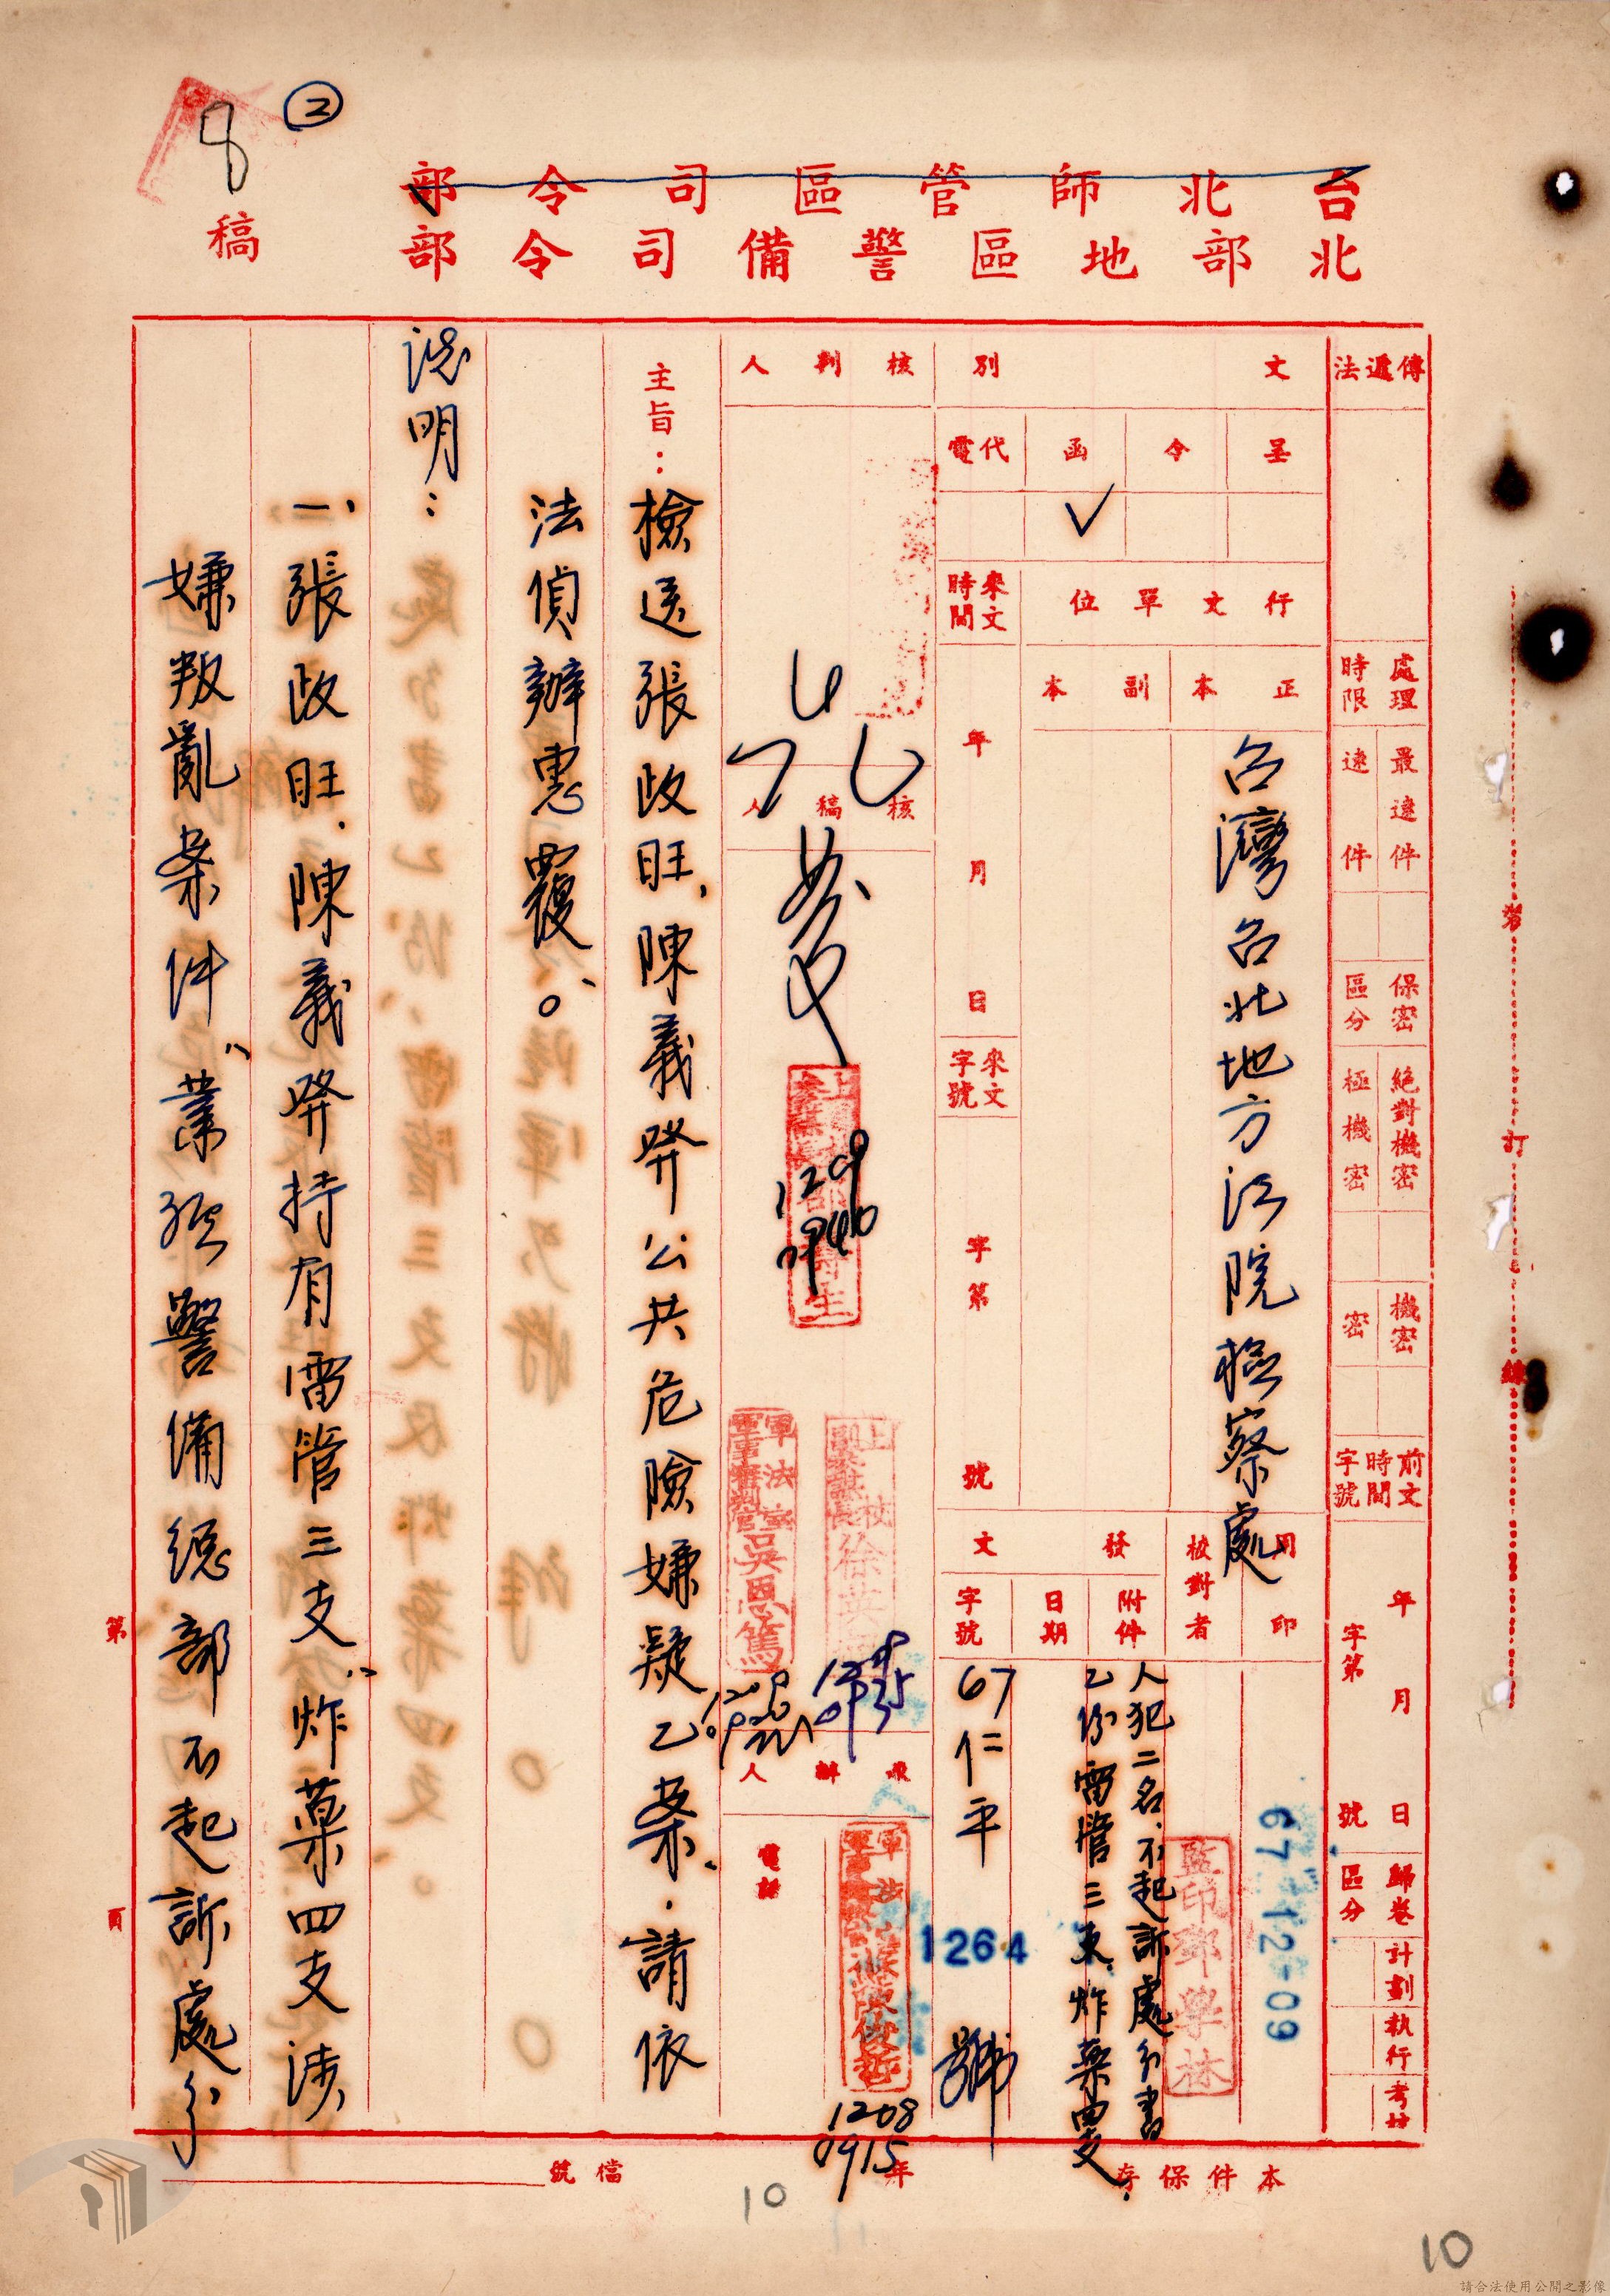 ②
8
台北師管區司令部
北部地區警備司令部
稿
傳遞法
處理時限
最速件
速件
保密區分
絕對機密
極機密
機密
密
前文時間字號
年月日
字第號
歸卷區分
計劃
執行
考核
文別
呈
令
函
代電
✓
行文單位
正本
副本
台灣台北地方法院檢察處
來文時間
年月日
來文字號
字第號
用印
校對者
發文
附件
日期
字號
67-12-09
監印鄧學林
人犯二名、不起訴處分書
乙份雷管三支、炸藥四支、
67仁平1264號
核判人
核稿人
擬辦人
電話
1209
0940
軍法室
吳恩篤
徐英
1208
0915
主旨：檢送張政旺、陳義發公共危險嫌疑乙案、請依
法偵辦惠覆。
說明：
一、張政旺、陳義發持有雷管三支、炸藥四支涉
嫌叛亂案件、業經警備總部不起訴處分
第頁
裝訂線
本件保存年
檔號
10
10
請合法使用公開之影像